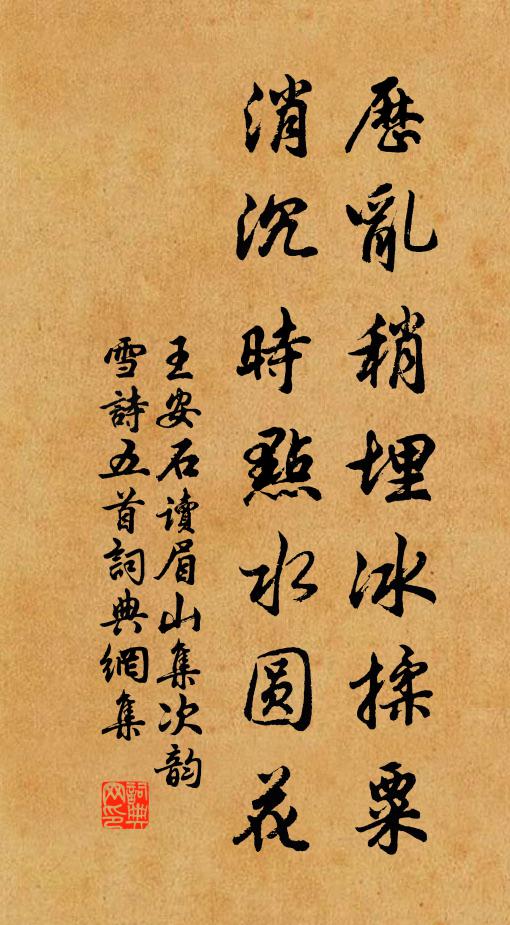 歷亂稍埋冰揉粟
消沉時點水圓花
王安石读眉山集次韵
雪詩五首詞典網集
詞典网印